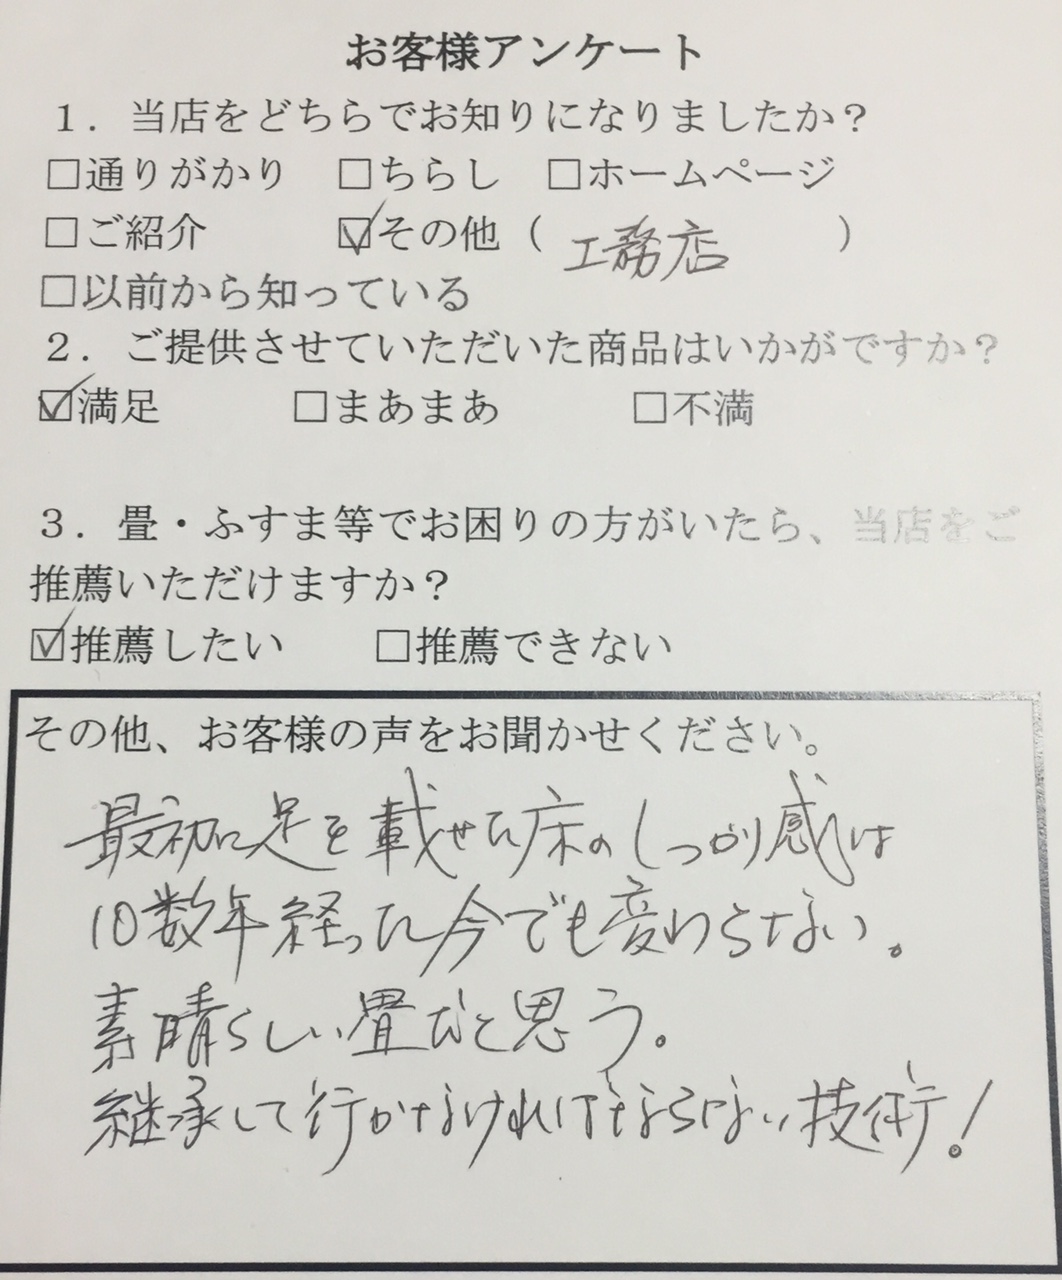 お客様アンケート
1．当店をどちらでお知りになりましたか？
□通りがかり　□ちらし　□ホームページ
□ご紹介　☑その他（工務店）
□以前から知っている
2．ご提供させていただいた商品はいかがですか？
☑満足　□まあまあ　□不満
3．畳・ふすま等でお困りの方がいたら、当店をご
推薦いただけますか？
☑推薦したい　□推薦できない
その他、お客様の声をお聞かせください。
最初に足を載せた床のしっかり感は
10数年経った今でも変わらない。
素晴らしい畳だと思う。
継承して行かなければならない技術！